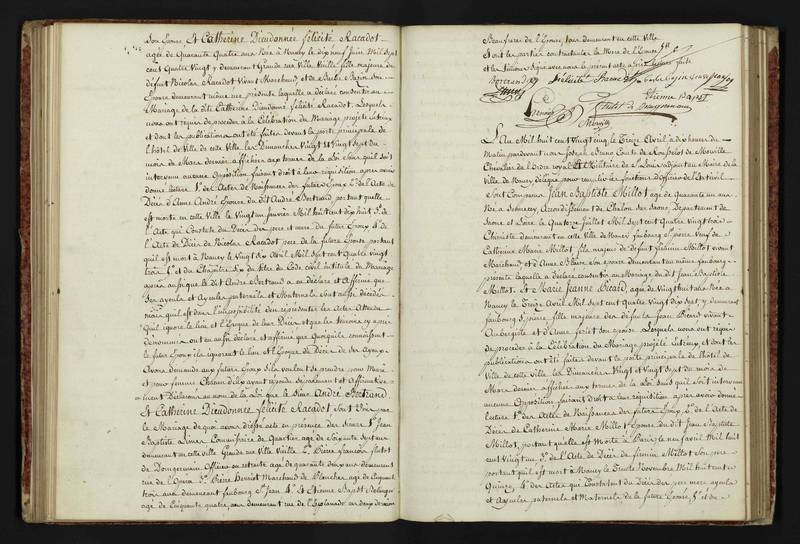 Son Epouse Et Catherine Dieudonnée félicité Racadot
agée de Quarante Quatre ans Née à Nancy le dix neuf Juin Mil Sept
cent Quatre Vingt y demeurant Grande rue Ville Vieille fille majeure de
défunt Nicolas Racadot Vivant Marchand et de Barbe Bazin Son
Epouse demeurant même rue présente laquelle a déclaré consentir au
Mariage de la dite Catherine Dieudonné félicité Racadot. Lesquels
nous ont requis de procéder à la Célébration du Mariage projeté entreux
et dont les publications ont été faites devant la porte principale de
l'hôtel de Ville de cette Ville les Dimanches Vingt & Vingt Sept du
mois de Mars dernier affichées aux termes de la loi Sans quil soit
intervenu aucune Opposition faisant droit à leur réquisition après avoir
donné lecture 1° des Actes de Naissances des futurs Epoux 2° de l'Acte de
Décès d'Anne André Epouse du dit André Bertrand portant quelle
est morte en cette Ville le Vingt un Janvier Mil huit cent dix huit 3° de
l'Acte qui Constate du Décès des pere et mere du futur Epoux 4° de
l'Acte de Décès de Nicolas Racadot pere de la future Epouse portant
quil est mort à Nancy le Vingt du Avril Mil Sept cent Quatre vingt
trois & et du Chapitre Six du titre du Code civil intitulé du Mariage
après quoi le dit André Bertrand a déclaré et Affirmé que
Ses ayeuls et Ayeules paternels et Maternels sont aussi décédés
mais quil est dans l'impossibilité den représenter les Actes Attendu
Quil ignore le lieu et l'Epoque de leur Décès et que les témoins cy après
dénommés ont en outre déclaré et affirmé que quoiquils connoissent
le futur Epoux ils ignorent le lieu et l'Epoque du Décès de Ses Ayeux
Avons demandé aux futurs Epoux Sils veulent se prendre pour Mari
et pour femme Chacun d'eux ayant répondu Séparément et Affirmative-
ment Déclarons au nom de la loi que le Sieur André Bertrand
Et Catherine Dieudonnée félicité Racadot Sont Unis par
le Mariage de quoi avons dressé acte en présence des Sieurs 1° Jean
Baptiste Commissaire de Quartier agé de Soixante Sept ans
demeurant en cette ville Grande rue Ville Vieille 2° Pierre francois
de Dongermain Officier en retraite agé de quarante deux ans demeurant
rue de l'Opera 3° Pierre Marchand de Planches agé de Cinquante
trois ans demeurant faubourg St Jean 4° et Etienne Bapst
agé de Cinquante quatre ans demeurant rue de l'Esplanade les deux derniers
Beaufreres de l'Epouse, tous demeurant en cette Ville
Et ont les parties contractantes la Mere de l'Epouse
et les témoins Signé avec nous le présent acte après Lecture faite
Bertrand
félicité
L'An Mil huit cent Vingt cinq le Treize Avril à dix heures du
Matin pardevant nous Joseph Bruno Comte de Rousselot de Morville
Chevalier de l'Ordre royal & Militaire de St Louis adjoint au Maire de la
Ville de Nancy délégué pour remplir les fonctions d'officier de l'etat civil
Sont Comparus Jean Baptiste Millot agé de Quarante un ans
Né à Arrondissement de Chalon sur Saone Departement de
Saone et Loire le Quatorze Juillet Mil Sept cent Quatre vingt trois
demeurant en cette Ville de Nancy faubourg St pierre Veuf de
Catherine Marie Millot, fils majeur de défunt firmin Millot vivant
Marchand, et d'Anne Blaise son epouse demeurant en même faubourg
présente laquelle a déclaré consentir au Mariage du dit Jean Baptiste
Millot. Et Marie Jeanne Picard, agée de Vingt huit ans Née à
Nancy le Treize Avril Mil Sept cent Quatre Vingt dix Sept, y demeurant
faubourg St pierre fille majeure des défunts Jean Picard vivant
Aubergiste et d'Anne son epouse. Lesquels nous ont requis
de procéder à la Célébration du Mariage projeté Entreux et dont les
publications ont été faites devant la porte principale de l'hôtel de
Ville de cette ville, les Dimanches Vingt et Vingt Sept du mois de
Mars dernier affichées aux termes de la Loi Sans quil soit intervenu
aucune Opposition, faisant droit à leur réquisition après avoir donné
lecture 1° des Actes de Naissances des futurs Epoux, 2° de l'Acte de
Décès de Catherine Marie Millot Epouse du dit Jean Baptiste
Millot, portant quelle est morte à Paris le neuf avril Mil huit
cent Vingt un 3° de l'Acte de Décès de firmin Millot Son pere
portant quil est mort à Nancy le Trente Novembre Mil huit cent
Quinze, 4° des Actes qui Constatent du Décès des pere mere ayeuls
et Ayeules paternels et Maternels de la future Epouse, 5° et du